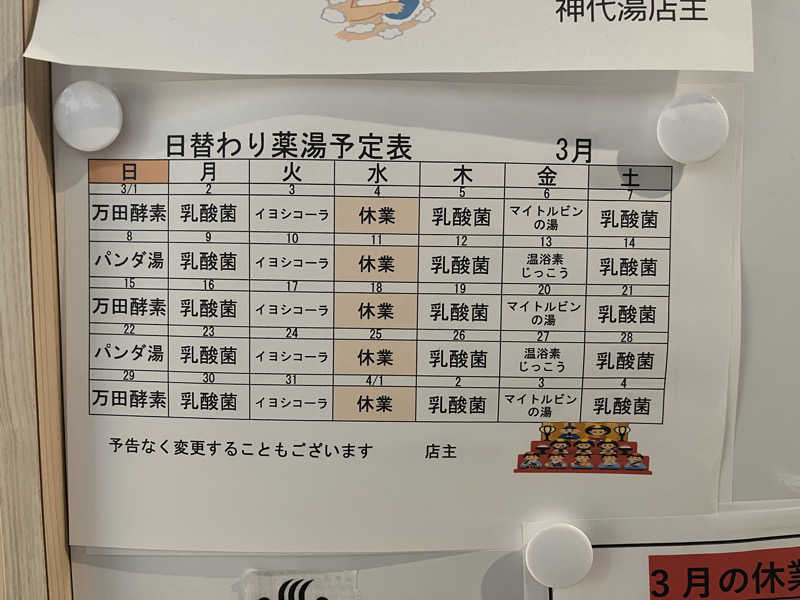 神代湯店主
日替わり薬湯予定表 3月
日 月 火 水 木 金 土
3/1 2 3 4 5 6 7
万田酵素 乳酸菌 イヨシコーラ 休業 乳酸菌 マイトルビンの湯 乳酸菌
8 9 10 11 12 13 14
パンダ湯 乳酸菌 イヨシコーラ 休業 乳酸菌 温浴素じっこう 乳酸菌
15 16 17 18 19 20 21
万田酵素 乳酸菌 イヨシコーラ 休業 乳酸菌 マイトルビンの湯 乳酸菌
22 23 24 25 26 27 28
パンダ湯 乳酸菌 イヨシコーラ 休業 乳酸菌 温浴素じっこう 乳酸菌
29 30 31 4/1 2 3 4
万田酵素 乳酸菌 イヨシコーラ 休業 乳酸菌 マイトルビンの湯 乳酸菌
予告なく変更することもございます 店主
3月の休業